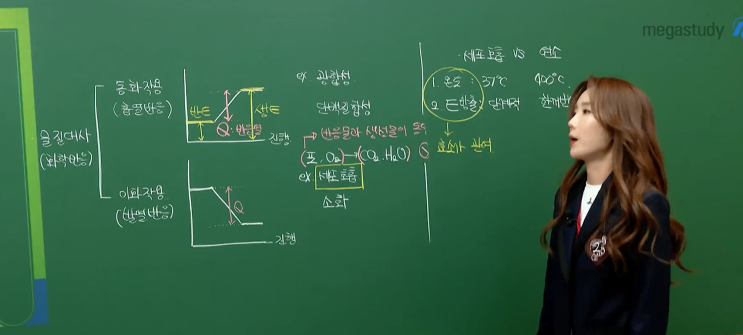 megastudy
물질대사
(화학반응)
동화작용
(흡열반응)
반E
생E
Q: 반응열
진행
ex 광합성
단백질합성
이화작용
(발열반응)
Q
진행
반응물과 생성물이
(포, O₂)→(CO₂, H₂O)
ex 세포호흡
소화
·세포호흡 VS 연소
1. 온도: 37℃ 400℃
2. E방출: 단계적
효소가 관여